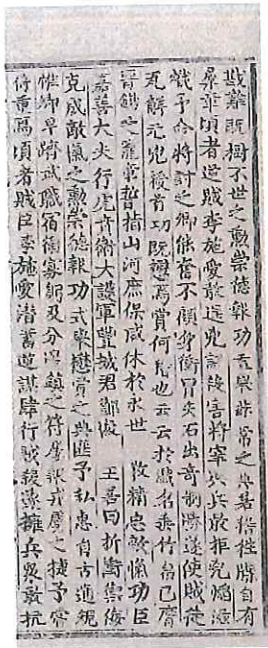 戡難既樹不世之勳崇德報功宜舉非常之典若稽往牒自有
彝章頃者逆賊李施愛敢逞兇謀害將宰兵敢拒兇焰滋
熾予命將討之卿能奮不顧身衝冒矢石出奇制勝遂使賊徒
瓦解元兇授首功旣懋焉賞何吝也云云於戲名垂竹帛已膺
晉錫之寵誓指山河庶保咸休於永世 敎精忠敵愾功臣
嘉善大夫行虎賁衛大護軍豐城君 王若曰折衝禦侮
克成敵愾之勳崇德報功式擧懋賞之典匪予私惠自古通規
惟卿早躋武職宿衛寡躬及分鎮之符屢報戎虜之捷予嘗
倚重焉頃者賊臣李施愛潛蓄逆謀肆行賊殺遂擁兵衆敢抗